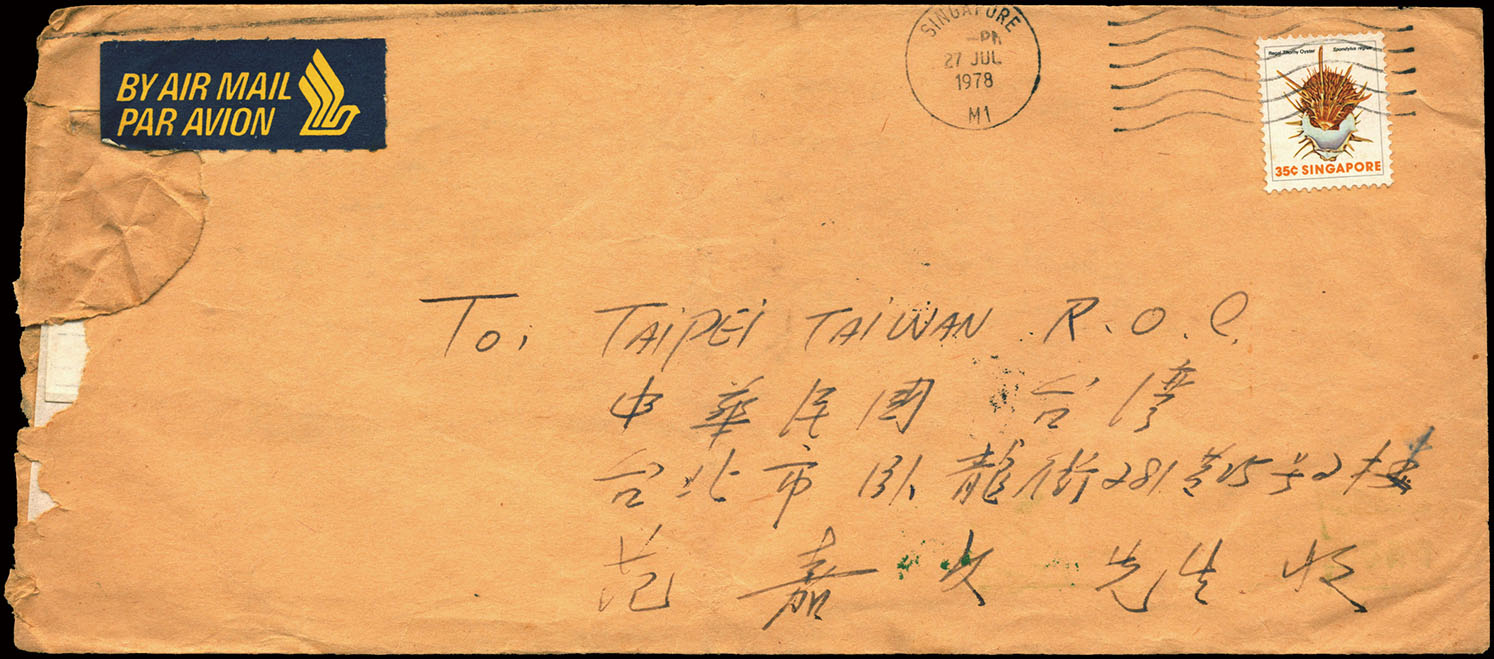 BY AIR MAIL
PAR AVION
SINGAPORE
-PM
27 JUL
1978
M1
Regal Thorny Oyster Spondylus regius
35¢ SINGAPORE
To: TAIPEI TAIWAN R.O.C.
中華民國 台湾
台北市臥龍街281巷25号2楼
范嘉文先生收